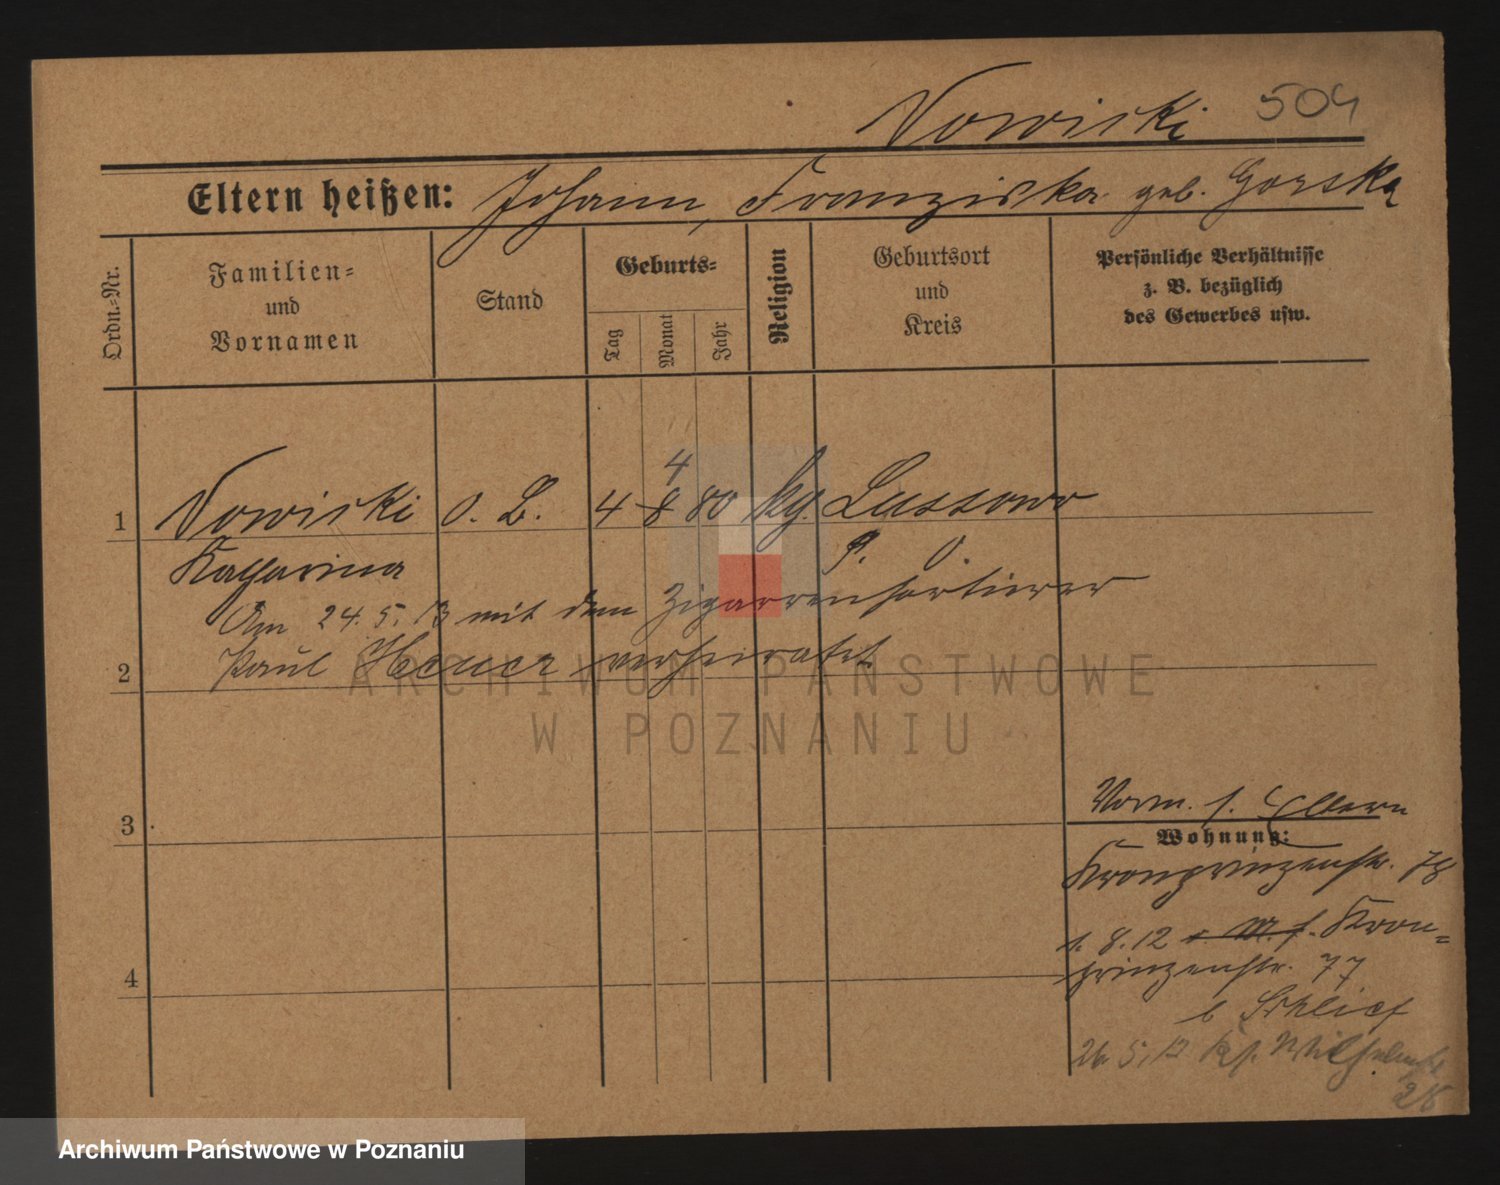 Nowicki 504
Eltern heißen: Johann, Franziska geb. Gorska
Ordn.-Nr.
Familien-
und
Vornamen
Stand
Geburts-
Tag
Monat
Jahr
Religion
Geburtsort
und
Kreis
Persönliche Verhältnisse
z. B. bezüglich
des Gewerbes usw.
4
1 Nowicki o. B. 4 8 80 kg. Lussowo
Katharina P. O.
Am 24.5.13 mit dem Zigarrensortierer
2 Paul Heuer verheiratet
ARCHIWUM PAŃSTWOWE
W POZNANIU
3
Vorm. s. Eltern
Wohnung:
Kronprinzenstr. 78
1.8.12 s. Kron-
prinzenstr. 77
4
b Schlief
26.5.13 Wilhelmstr.
28
Archiwum Państwowe w Poznaniu